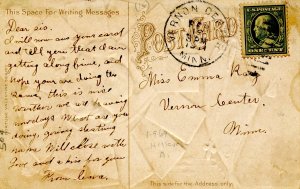 This Space For Writing Messages
Dear Sis.
I will now ans your card
and tell you that I am
getting along fine, and
hope you are doing the
same, this is nice
weather we are having
nowdays. What are you
doing, going skating
now. Will close with
love and a kiss for you
From
POSTCARD
VERNON CENTER
MINN.
U.S. POSTAGE
ONE CENT
Miss Emma
Vernon Center,
Minn.
This side for the Address only.